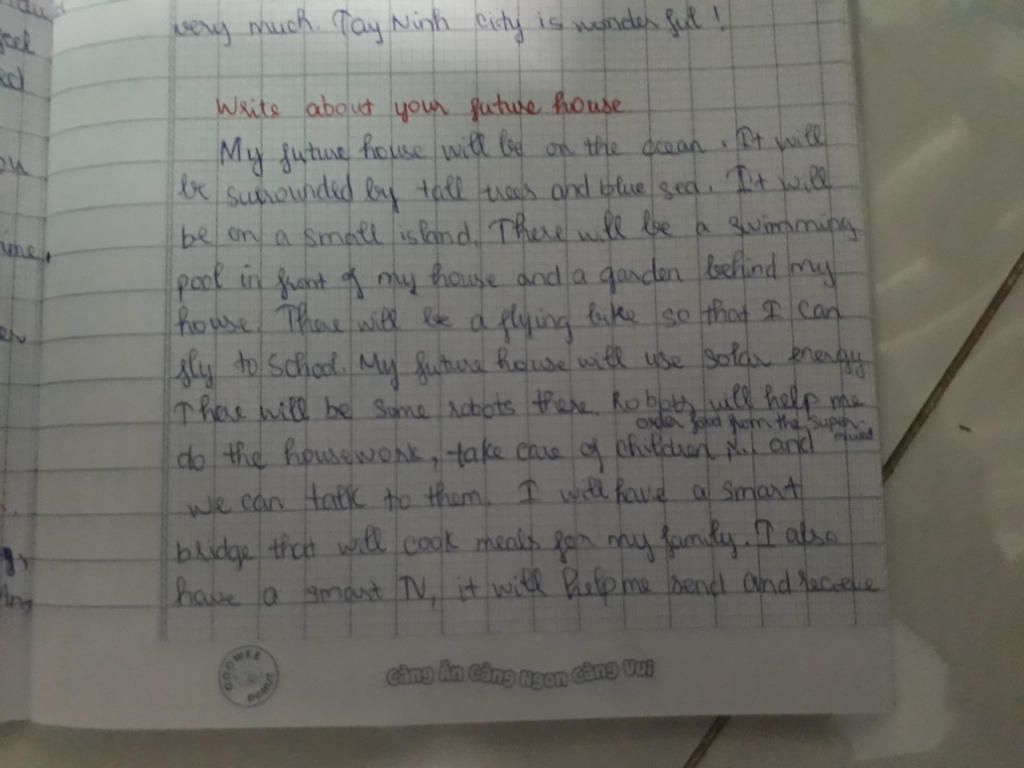 very much. Tay Ninh city is wonderful!
Write about your future house
My future house will be on the ocean. It will
be surrounded by tall trees and blue sea. It will
be on a small island. There will be a swimming
pool in front of my house and a garden behind my
house. There will be a flying bike so that I can
fly to school. My future house will use solar energy
There will be some robots there. Robots will help me
order food from the super
do the housework, take care of children and
we can talk to them. I will have a smart
bridge that will cook meals for my family. I also
have a smart TV, it will help me send and recieve
Càng Ăn Càng Ngon Càng Vui